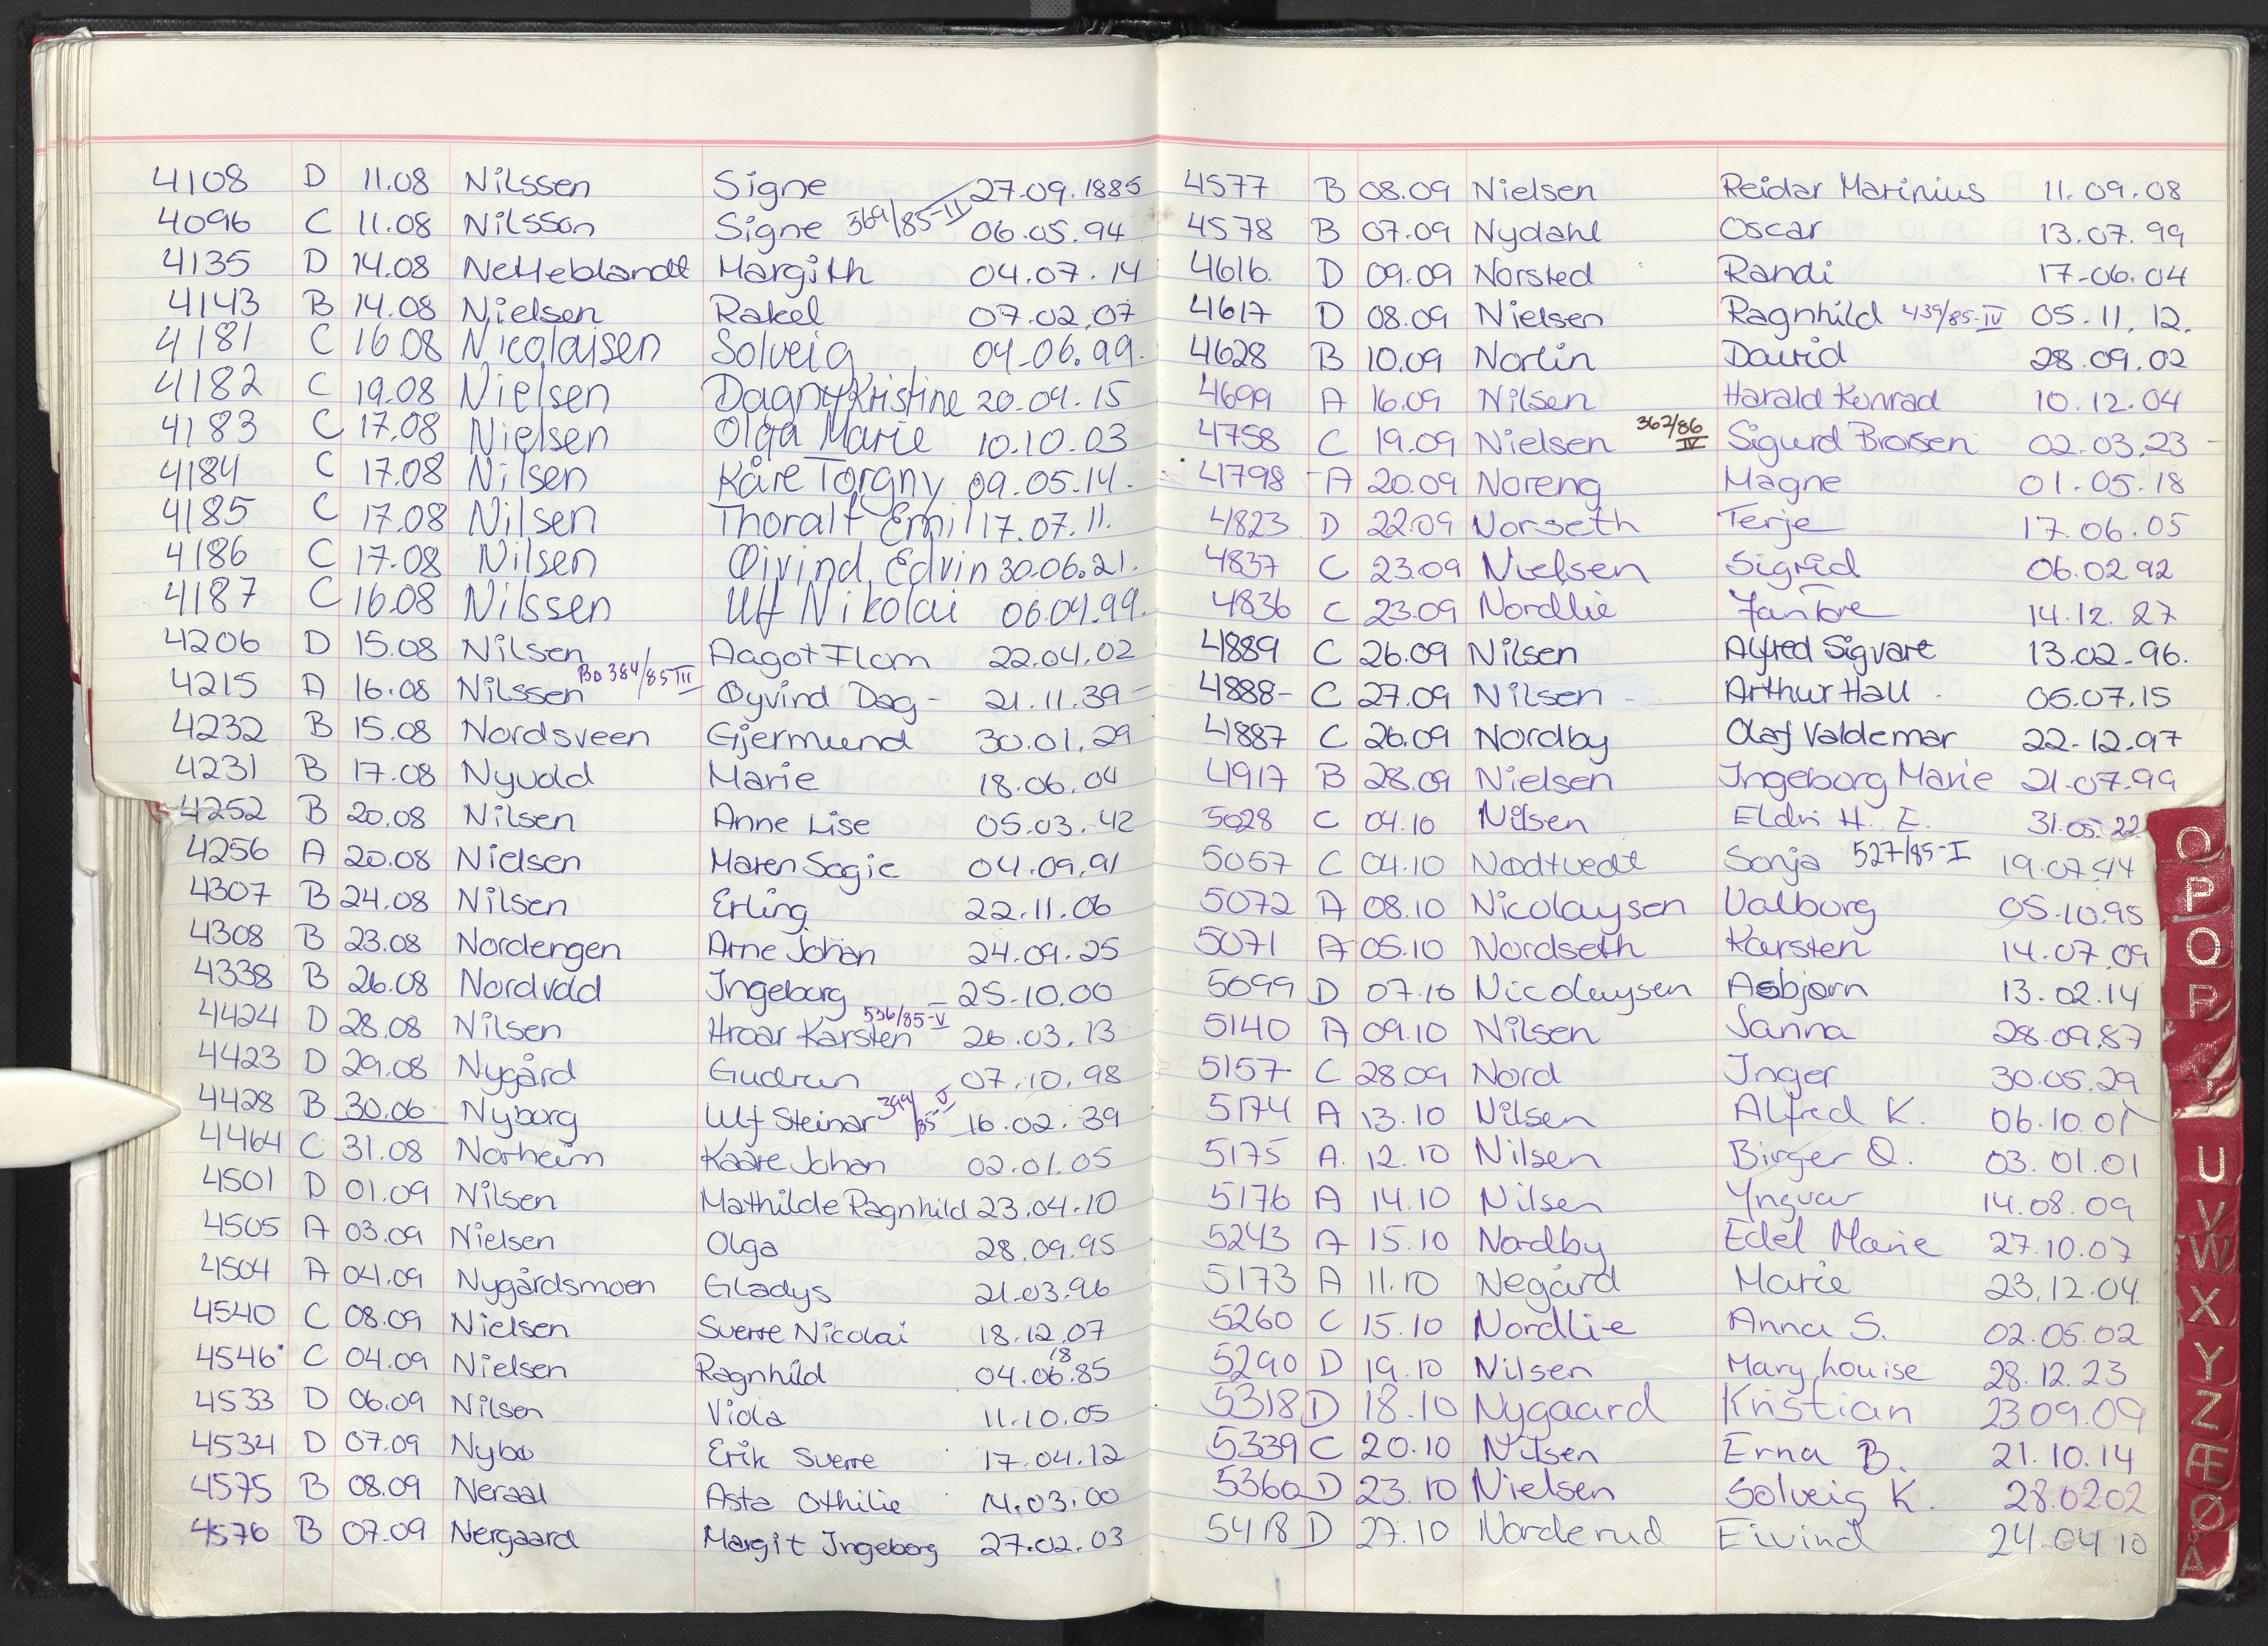 4108 D 11.08 Nilssen Signe 27.09.1885
4096 C 11.08 Nilsson Signe 369/85-II 06.05.94
4135 D 14.08 Netteblandt Margith 04.07.14
4143 B 14.08 Nielsen Rakel 07.02.07
4181 C 16.08 Nicolaisen Solveig 04.06.99.
4182 C 19.08 Nielsen Dagny Kristine 20.09.15
4183 C 17.08 Nielsen Olga Marie 10.10.03
4184 C 17.08 Nilsen Kåre Torgny 09.05.14.
4185 C 17.08 Nilsen Thoralf Emil 17.07.11.
4186 C 17.08 Nilsen Øivind Edvin 30.06.21.
4187 C 16.08 Nilssen Ulf Nikolai 06.04.99.
4206 D 15.08 Nilsen Aagot Flom 22.04.02
4215 A 16.08 Nilssen Bo 384/85 III Øyvind Dag - 21.11.39 -
4232 B 15.08 Nordsveen Gjermund 30.01.29
4231 B 17.08 Nyvold Marie 18.06.04
4252 B 20.08 Nilsen Anne Lise 05.03.42
4256 A 20.08 Nielsen Maren Sogie 04.09.91
4307 B 24.08 Nilsen Erling 22.11.06
4308 B 23.08 Nordengen Arne Johan 24.09.25
4338 B 26.08 Nordvold Ingeborg - 25.10.00
4424 D 28.08 Nilsen Hroar Karsten 536/85-V 26.03.13
4423 D 29.08 Nygård Gudrun 07.10.98
4428 B 30.06 Nyborg Ulf Steinar 399/85 V 16.02.39
4464 C 31.08 Norheim Kaare Johan 02.01.05
4501 D 01.09 Nilsen Mathilde Ragnhild 23.04.10
4505 A 03.09 Nielsen Olga 28.09.95
4504 A 04.09 Nygårdsmoen Gladys 21.03.96
4540 C 08.09 Nielsen Sverre Nicolai 18.12.07
4546 C 04.09 Nielsen Ragnhild 04.06.1885
4533 D 06.09 Nilsen Viola 11.10.05
4534 D 07.09 Nybø Erik Sverre 17.04.12
4575 B 08.09 Neraal Asta Othilie 14.03.00
4576 B 07.09 Nergaard Margit Ingeborg 27.02.03
4577 B 08.09 Nielsen Reidar Marinius 11.09.08
4578 B 07.09 Nydahl Oscar 13.07.99
4616. D 09.09 Norsted Randi 17-06.04
4617 D 08.09 Nielsen Ragnhild 439/85-IV 05.11.12.
4628 B 10.09 Norlin David 28.09.02
4699 A 16.09 Nilsen Harald Konrad 10.12.04
4758 C 19.09 Nielsen 362/86 IV Sigurd Brorsen 02.03.23 -
4798 - A 20.09 Noreng Magne 01.05.18
4823 D 22.09 Norseth Terje 17.06.05
4837 C 23.09 Nielsen Sigrid 06.02.92
4836 C 23.09 Nordlie Jan Tore 14.12.27
4889 C 26.09 Nilsen Alfred Sigvart 13.02.96.
4888 - C 27.09 Nilsen - Arthur Hall. 05.07.15
4887 C 26.09 Nordby Olaf Valdemar 22.12.97
4917 B 28.09 Nielsen Ingeborg Marie 21.07.99
5028 C 04.10 Nilsen Eldri H. E. 31.05.22
5057 C 04.10 Nødtvedt Sonja 527/85-I 19.07.44
5072 A 08.10 Nicolaysen Valborg 05.10.95
5071 A 05.10 Nordseth Karsten 14.07.09
5099 D 07.10 Nicolaysen Asbjørn 13.02.14
5140 A 09.10 Nilsen Janna 28.09.87
5157 C 28.09 Nord Inger 30.05.29
5174 A 13.10 Nilsen Alfred K. 06.10.01
5175 A. 12.10 Nilsen Birger O. 03.01.01
5176 A 14.10 Nilsen Yngvar 14.08.09
5243 A 15.10 Nordby Edel Marie 27.10.07
5173 A 11.10 Negård Marie 23.12.04.
5260 C 15.10 Nordlie Anna S. 02.05.02
5290 D 19.10 Nilsen Mary Louise 28.12.23
5318 D 18.10 Nygaard Kristian 23.09.09
5339 C 20.10 Nilsen Erna B. 21.10.14
5360 D 23.10 Nielsen Solveig K. 28.02.02
5418 D 27.10 Norderud Eivind 24.04.10
O
P
Q
R
U
V
W
X
Y
Z
Æ
Ø
Å